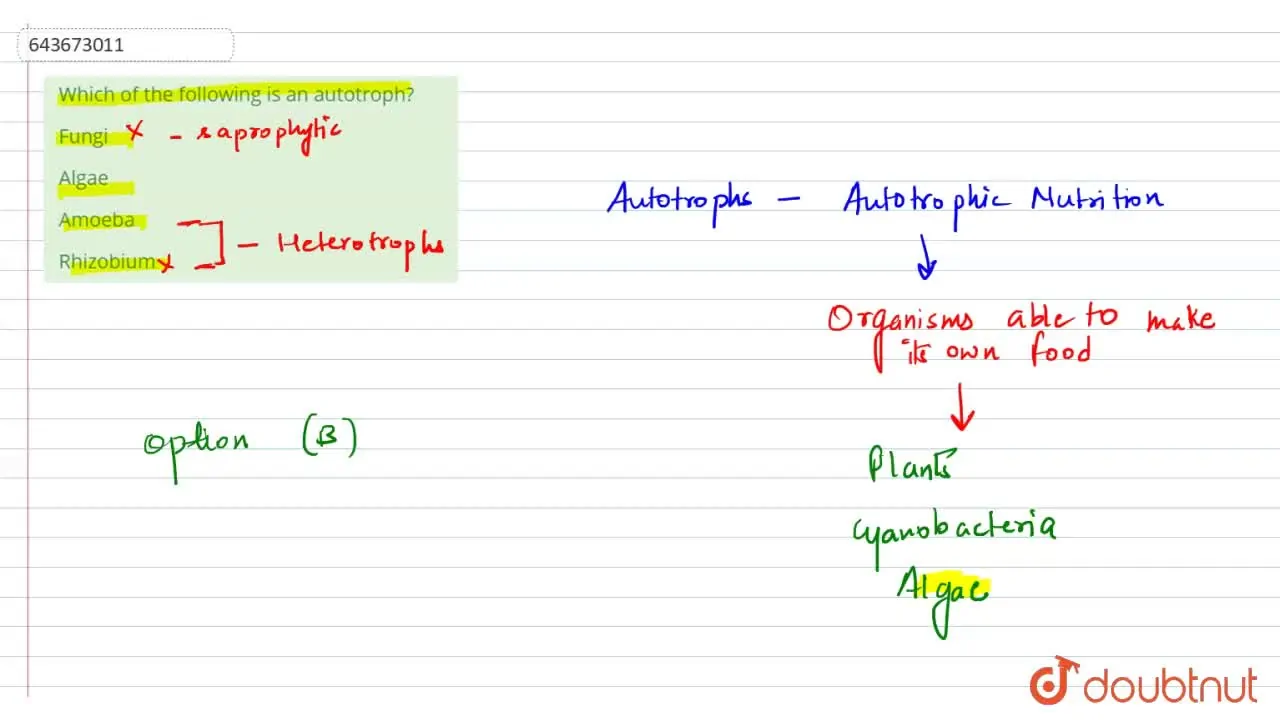 643673011
Which of the following is an autotroph?
Fungi x - saprophytic
Algae
Amoeba
Rhizobium x
- Heterotrophs
Autotrophs - Autotrophic Nutrition
Organisms able to make
its own food
Plants
Cyanobacteria
Algae
option (B)
doubtnut